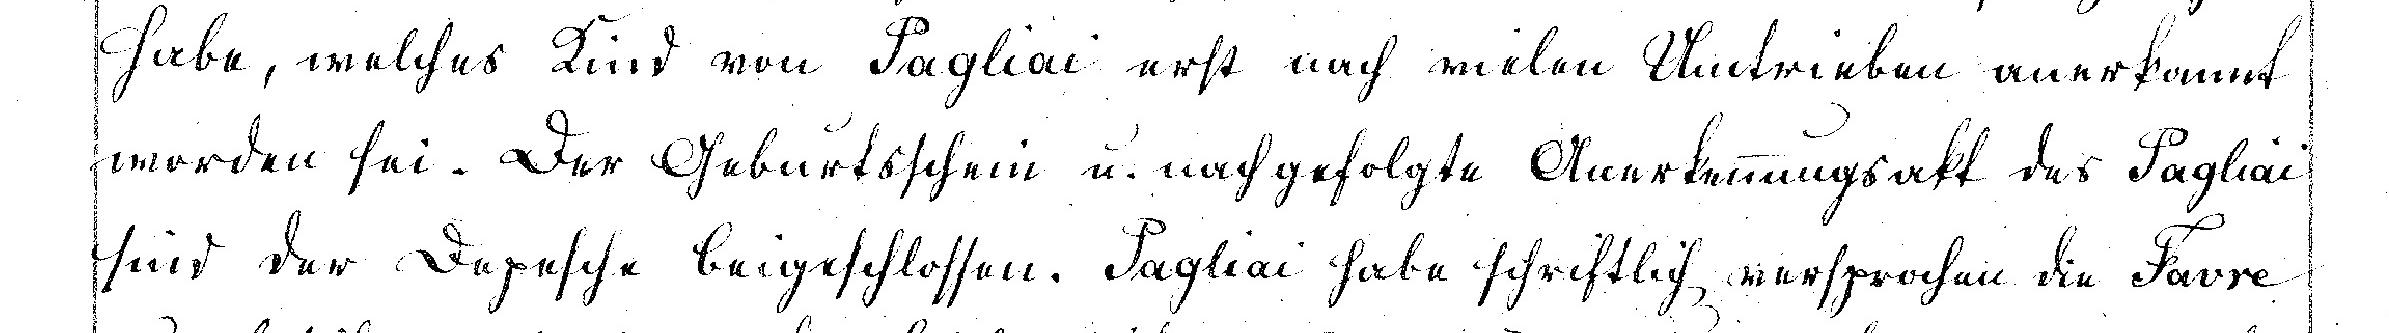 habe, welches Kind von Pagliai erst nach vielen Umtrieben anerkannt
worden sei. Der Geburtsschein u. nachgefolgte Anerkennungsakt des Pagliai
sind der Depesche beigeschlossen. Pagliai habe schriftlich versprochen die Favre